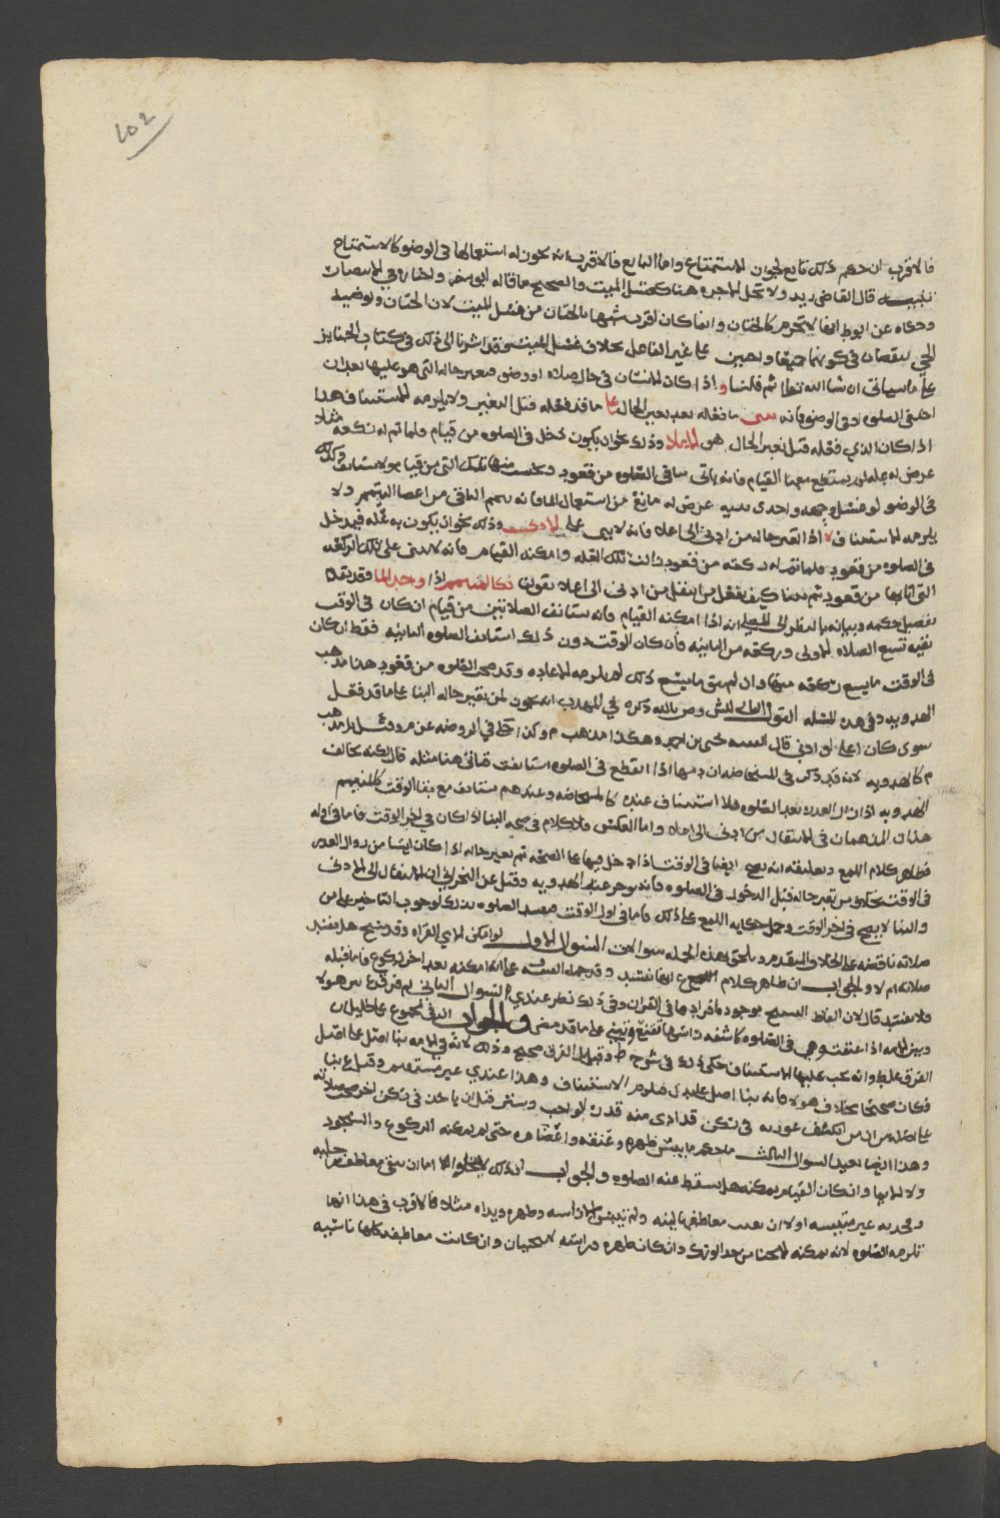 فالاقرب ان حكم ذلك تابع لجواز الاستمتاع واما البايع فالاقرب انه يجوز له استعمالها في الوضو كالاستمتاع
تنبيه قال القاضي زيد ولا تحل الاجره هنا كغسل الميت والصحيح ما قاله ابو مضر
وحكاه عن ابوط انها لا تحرم كالختان وانما كان اقرب شبها بالختان من غسل الميت لان الختان وتوضيه
الحي على غير الفاعل بخلاف غسل الميت وقد اشرنا الى ذلك في كتاب الجنايز
على ما سياتي ان شا الله تعالى ثم قلنا واذا كان الانسان في حال صلاه او وضو فتغير حاله التي هو عليها
في الصلوه وفي الوضو فانه يبني ما فعله بعد تغير الحال على ما قد فعله قبل التغير ولا يلزمه الاستيناف هذا
اذا كان الذي فعله قبل تغير الحال هو الاعلا وذلك نحو ان يكون دخل في الصلوه من قيام فلما تم له ركعه مثلا
عرض له عله لم يستطع معها القيام فانه ياتي بباقي الصلوه من قعود التي من قيام ولا يستانف وكذلك
في الوضو لو غسل وجهه واحدى يديه عرض له مانع من استعمال الما فانه ييمم الباقي من اعضا التيمم ولا
يلزمه الاستيناف لا اذا تغير حاله من ادنى الى اعلا فانه لا يبني على الادنى وذلك نحو ان يكون به عله فيدخل
في الصلوه من قعود فلما تم له ركعه من قعود زالت تلك العله وامكنه القيام فانه لا يبني على تلك الركعه
التي اتى بها من قعود ثم بينا كيف يفعل من انتقل من ادنى الى اعلا بقولنا فكالمتيمم اذا وجد الما وقد تقدم
تفصيل حكمه وبيانه بالنظر الى المصلي انه اذا امكنه القيام فانه يستانف الصلاتين من قيام ان كان في الوقت
بقيه تسع الصلاه الاولى وركعه من الثانيه فان كان الوقت دون ذلك استانف الصلوه الثانيه فقط ان كان
في الوقت ما يسع ركعه منها وان لم يبق ما يتسع لذلك لم يلزمه الاعاده وقد صحت الصلوه من قعود هذا مذهب
الهدويه وفي هذه المسله القول الثاني للش وص بالله ذكره في المهذب انه يجوز لمن تغير حاله البنا على ما قد فعل
سوى كان اعلى او ادنى قال الفقيه يحيى بن احمد وهكذا مذهب م وكذا حكى في الروضه عن م وقيل بل مذهب
م كالهدويه لانه قد ذكر في المستحاضه ان دمها اذا انقطع في الصلوه استانفت فياتي هنا مثله قال لكنه يخالف
الهدويه اذا زال العذر بعد الصلوه فلا استيناف عنده كالمستحاضه وعندهم يستانف مع بقا الوقت كالمتيمم
هذان المذهبان في الانتقال من ادنى الى اعلا واما العكس فلا كلام في صحه البنا اذا كان في اخر الوقت فاما في اوله
فظاهر كلام اللمع وتعليقه انه يصح ايضا في الوقت اذا دخل فيها على الصحه ثم تغير حاله اذا كان ايسا من زوال العذر
في الوقت بخلاف من تغير حاله قبل الدخول في الصلوه فانه يوخر عند الهدويه ونقل عن التخريج ان الانتقال الى الادنى
والبنا لا يصح في اخر الوقت وحمل حكايه اللمع على ذلك فاما في اول الوقت فتفسد الصلوه بذلك لوجوب التاخير على من
صلاته ناقصه على الخلاف المتقدم ويلحق بهذه الجمله سوالات السوال الاول لو امكن الامي القراه وقد هل تفسد
صلاته ام لا والجواب ان ظاهر كلام الشرح انها تفسد وقد حمله الفقيه على انه امكنه بعد اخر ركوع فاما قبله
فلا تفسد قال لان الفاظ التسبيح موجوده افرادها في القران وفي ذلك نظر عندي السوال الثاني لم فرقتم بين هولا
وبين الامه اذا اعتقت وهي في الصلوه كاشفه راسها تقنع وتبني على ما قد مضى والجواب ان في المجموع على خليل ان
الفرق غلط وانه يجب عليها الاستيناف حكى ذلك في شرح ط وقيل بل الفرق صحيح وذلك لانه في الامه بنا اصل على اصل
فكان صحيحا بخلاف هولا فانه بنا اصل على بدل فلزم الاستيناف وهذا عندي غير مستقيم
على اصله من ان من انكشف عورته في ركن قد ادى منه قدر الواجب وستر قبل ان ياخذ في ركن اخر صحت صلاته
وهذا ايضا بعيد السوال الثالث ما حكم من يبس ظهره وعنقه واعضاه حتى لم يمكنه الركوع والسجود
ولا الايما وان كان القيام يمكنه هل يسقط عنه الصلوه والجواب ان ذلك لا يخلوا اما ان يبقى معاطف رجليه
وفخذيه غير متيبسه او لا ان بقيت معاطفها لينه ولم تيبس بل راسه وظهره ويداه مثلا فالاقرب في هذا انها
تلزمه الصلوه لانه يمكنه الانحنا من حد الورك وان كان ظهره وراسه لا ينحنيان وان كانت معاطفه كلها ناشبه